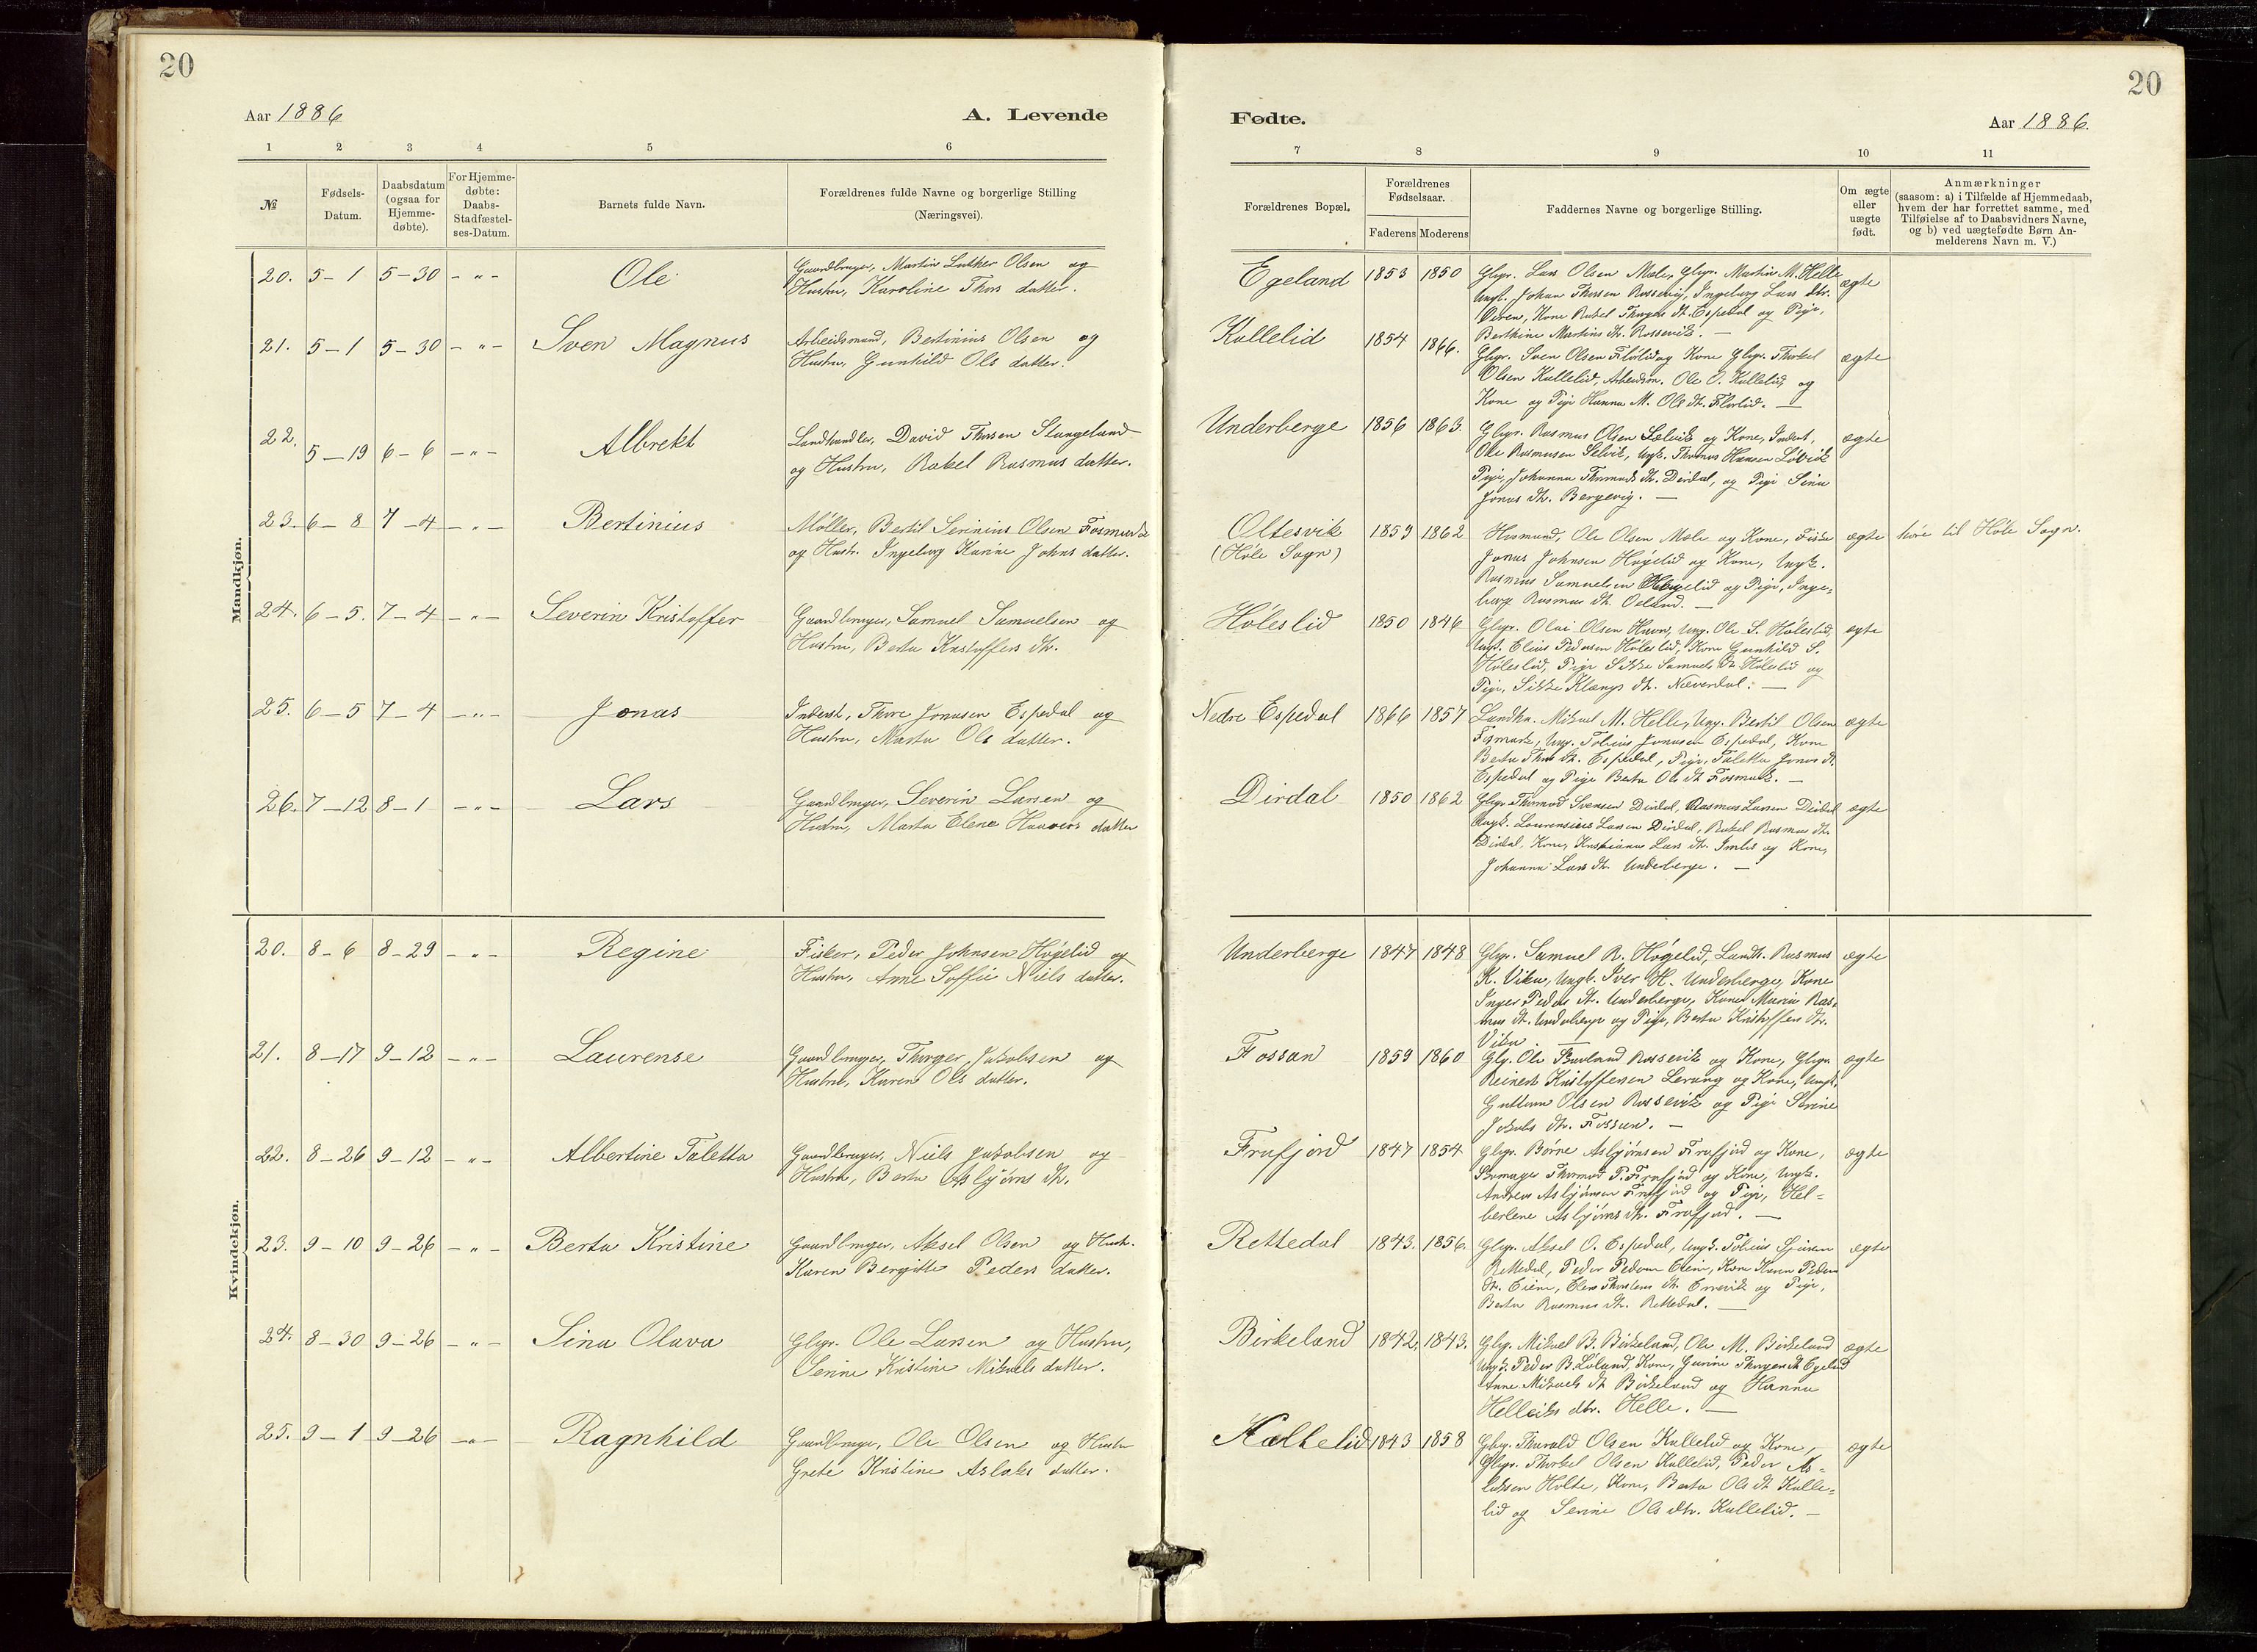 20
Aar 1886
A. Levende
1 2 3 4 5 6
№
Fødsels-
Datum.
Daabsdatum
(ogsaa for
Hjemme-
døbte).
For Hjemme-
døbte:
Daabs-
Stadfæstel-
ses-Datum.
Barnets fulde Navn.
Forældrenes fulde Navne og borgerlige Stilling
(Næringsvei).
Mandkjøn.
20. 5-1 5-30 -"- Ole Gaardbruger, Martin Luther Olsen og
Hustru, Karoline Thors datter.
21. 5-1 5-30 -"- Sven Magnus Arbeidsmand, Bertinius Olsen og
Hustru, Gunhild Ols datter.
22. 5-19 6-6 -"- Albrekt Landhandler, David Thorsen Stangeland
og Hustru, Rakel Rasmus datter.
23. 6-8 7-4 -"- Bertinius Møller, Bertil Serinius Olsen Fosmark
og Hustr. Ingeborg Karine Johns datter.
24. 6-5. 7-4 -"- Severin Kristoffer Gaardbruger, Samuel Samuelsen og
Hustru, Berta Kristoffers dtr.
25. 6-5 7-4 -"- Jonas Inderst, Thore Jonasen Espedal og
Hustru, Marta Ols datter.
26. 7-12 8-1 -"- Lars Gaardbruger, Severin Larsen og
Hustru, Marta Elene Haavers datter
Kvindekjøn.
20. 8-6 8-29 -"- Regine Fisker, Peder Johnsen Høgelid og
Hustru, Anne Soffie Niels datter.
21. 8-17 9-12 -"- Laurense Gaardbruger, Thorger Jakobsen og
Hustru, Karen Ols datter.
22. 8-26 9-12 -"- Albertine Taletta Gaardbruger, Niels Jakobsen og
Hustru, Berta Asbjørns dtr.
23. 9-10 9-26 -"- Berta Kristine Gaardbruger, Aksel Olsen og Hustr.
Karen Bergitte Peders datter.
24. 8-30 9-26 -"- Sina Olava Gbgr. Ole Larsen og Hustru,
Serine Kristine Mikaels datter.
25. 9-1 9-26 -"- Ragnhild Gaardbruger, Ole Olsen og Hustru
Grete Kristine Aslaks datter.
20
Fødte.
Aar 1886.
7 8 9 10 11
Forældrenes Bopæl.
Forældrenes
Fødselsaar.
Faderens Moderens
Faddernes Navne og borgerlige Stilling.
Om ægte
eller
uægte
født.
Anmærkninger
(saasom: a) i Tilfælde af Hjemmedaab,
hvem der har forrettet samme, med
Tilføielse af to Daabsvidners Navne,
og b) ved uægtefødte Børn An-
melderens Navn m. V.)
Egeland 1853 1850 Gbgr. Lars Olsen Mæle, Gbgr. Martin M. Helle ægte
Ungk. Johan Thorsen Rossevig, Ingeborg Lars dtr.
Kone Rakel dt. Espedal og Pige,
Bertine Martins dt. Rossevik.
Kallelid 1854 1866. Gbgr. Sven Olsen Florlid og Kone Gbgr. Thorkel ægte
Olsen Kallelid, Arbeidsm. Ole O. Kallelid, og
Kone og Pige Hanna M. Ols dt. Florlid.
Underberge 1856 1863. Gbgr. Rasmus Olsen Selvik og Kone, Inderst, ægte
Ole Rasmusen Selvik, Ungk. Thomas Hansen Løvik
Pige, Johanna Thormods dt. Dirdal, og Pige Sina
Jonas dt. Bergevig.
Oltesvik 1859 1862 Husmand, Ole Olsen Mæle og Kone, Fisker ægte høre til Høle Sogn.
(Høle Sogn) Jonas Johnsen Høgelid og Kone, Ungk.
Rasmus Samuelsen Høgelid og Pige, Inge-
borg Rasmus dt.
Høleslid 1850 1846 Gbgr. Olai Olsen Havn, Ung. Ole S. Høleslid, ægte
Ungk. Elias Pedersen Høleslid, Kone Gunhild S.
Høleslid, Pige Sikke Samuels dt. Høleslid og
Pige, Sikke Klængs dt. Næverdal.
Nedre Espedal 1866 1857 Landha. Mikael M. Helle, Ung. Bertil Olsen ægte
Fosmark, Ung. Tobias Jonasen Espedal, Kone
Berta Thors dt. Espedal, Pige, Taletta Jonas dt.
Espedal og Pige Berta Ols dt. Fosmark.
Dirdal 1850 1862 Gbgr. Thormod Svensen Dirdal, Rasmus Larsen Dirdal ægte
Ungk. Laurensius Larsen Dirdal, Rakel Rasmus dtr.
Dirdal, Kone, Lars dt. og Kone,
Johanna Lars dt. Underberge.
Underberge 1847 1848 Gbgr. Samuel R. Høgelid, Landh. Rasmus ægte
K. Vika, Ungk. Iver H. Underberge, Kone
Inger Peders dt. Underberge, Kone Maria Ras-
mus dt. Underberge og Pige, Berta Kristoffers dtr.
Vika
Fossan 1859 1860 Gbg. Ole Rossevik og Kone, Gbgr. ægte
Reinert Kristoffersen Lerang og Kone, Ungk.
Guttorm Olsen Rossevik og Pige Serine
Jakobs dtr. Fossan.
Frafjord 1847 1854 Gbgr. Børne Asbjørnsen Frafjord og Kone, ægte
Skomager Thormod P. Frafjord og Kone, Ungk.
Andreas Asbjørnsen Frafjord og Pige, Hel-
berlene Asbjørns dt. Frafjord.
Rettedal 1843. 1856. Gbgr. Aksel O. Espedal, Ungk. Tobias ægte
Rettedal, Peder Pedersen Eiene, Kone Karen Peders
dt. Eiene, dt. og Pige,
Berta Rasmus dt. Rettedal.
Birkeland 1842. 1843. Gbg. Mikael B. Birkeland, Ole M. Birkeland ægte
Ungk. Peder B. Løland, Kone, Gurine dt. Egeland
Anne Mikaels dt. Birkeland og Hanna
Helleiks dtr. Helle.
Kallelid 1843 1858 Gbg. Thorvald Olsen Kallelid og Kone, ægte
Gbgr. Thorkel Olsen Kallelid, Peder As-
laksen Holte, Kone, Berta Ols dt Kalle-
lid og Serine Ols dtr. Kallelid.